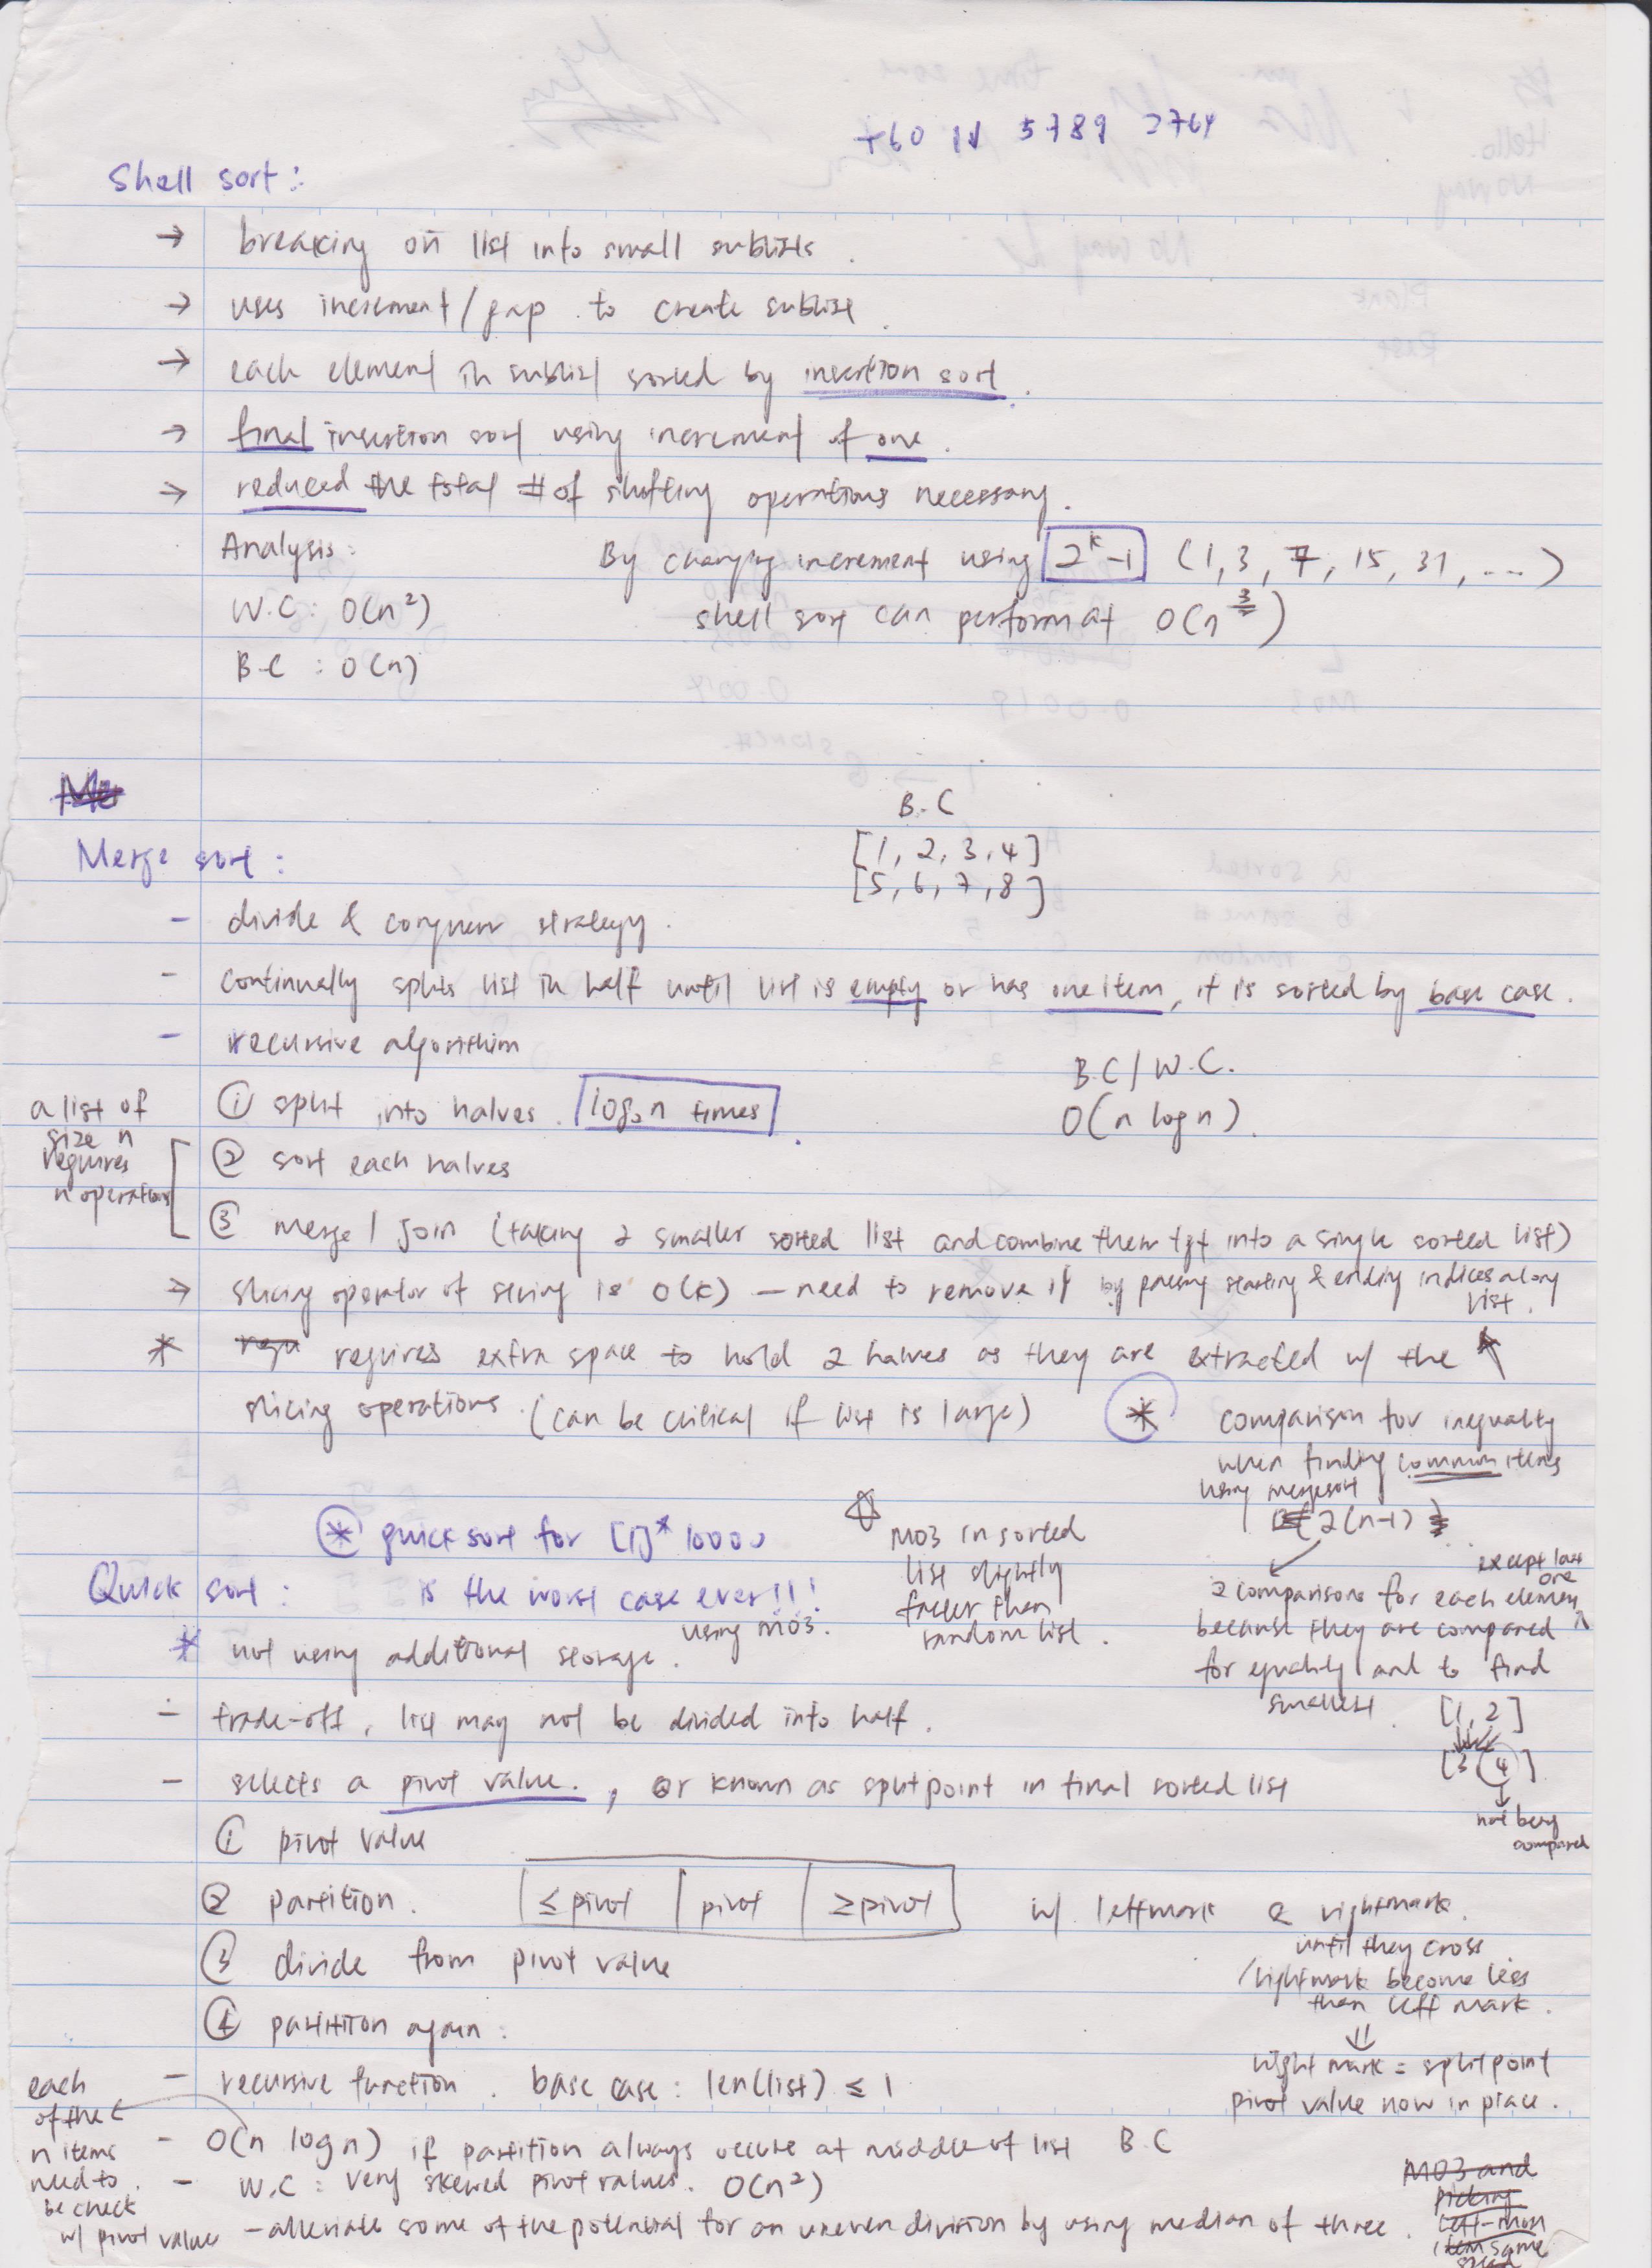 +60 11 5789 2764
Shell sort :
→ breaking on list into small sublists .
→ uses increment/gap to create sublist .
→ each element in sublist sorted by insertion sort .
→ final insertion sort using increment of one .
→ reduced the total # of shifting operations necessary .
Analysis : By changing increment using 2^k -1 (1, 3, 7, 15, 31, ...)
W.C : O(n²) shell sort can perform at
B.C : O(n)
B.C
[1, 2, 3, 4]
[5, 6, 7, 8]
Merge sort :
- divide & conquer strategy .
- continually splits list in half until list is empty or has one item, it is sorted by base case .
- recursive algorithim
B.C / W.C.
O(n log n) .
① split into halves . log₂n times .
② sort each halves
③ merge / join (taking 2 smaller sorted list and combine them tgt into a single sorted list)
a list of
size n
requires
n operations
→ slicing operator of string is O(k) — need to remove it by passing starting & ending indices along
list .
* requires extra space to hold 2 halves as they are extracted w/ the
slicing operations . (can be critical if list is large)
* comparison for inequality
when finding common items
using mergesort
2(n-1)
2 comparisons for each element
except last
one
because they are compared
for equality and to find
smallest .
[1, 2]
[3 4]
↓
not being
compared
* quick sort for [1]* 10000
is the worst case ever!!!
using MO3 .
MO3 in sorted
list slightly
faster than
random list .
Quick sort :
* not using additional storage .
- trade-off, list may not be divided into half .
- selects a pivot value . , or known as splitpoint in final sorted list
① pivot value
② partition . ≤ pivot | pivot | ≥ pivot w/ leftmark & rightmark .
until they cross .
/rightmark become less
than left mark .
⇓
right mark = splitpoint
pivot value now in place .
③ divide from pivot value
④ partition again :
- recursive function . base case : len(list) ≤ 1
- O(n log n) if partition always occurs at middle of list B.C
- W.C : very skewed pivot values . O(n²)
- alleviate some of the potential for an uneven division by using median of three .
each
of the
n items
need to
be check
w/ pivot value
MO3 and
picking
left-most
item same